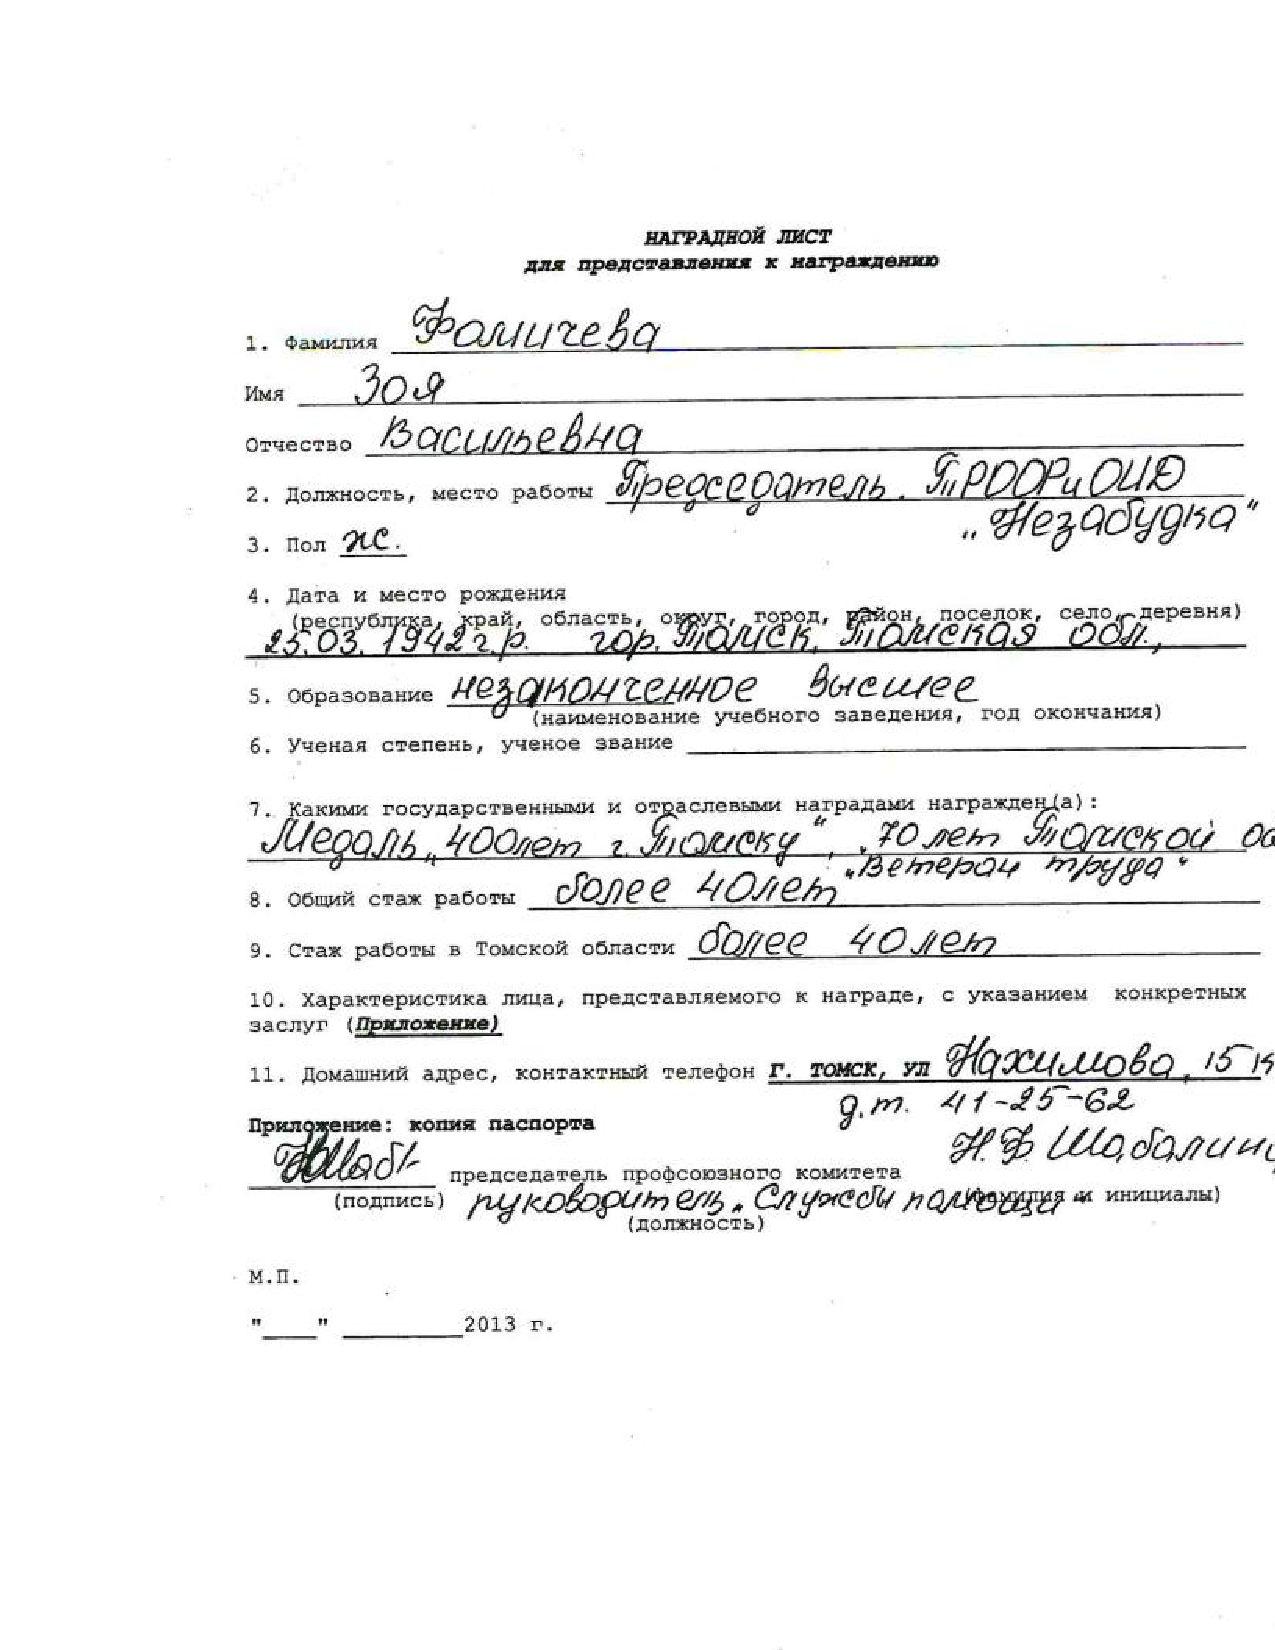 НАГРАДНОЙ ЛИСТ
для представления к награждению
1. Фамилия Фомичева
Имя Зоя
Отчество Васильевна
2. Должность, место работы Председатель ТРООРиОИД
„Незабудка"
3. Пол ж.
4. Дата и место рождения
(республика, край, область, округ, город, район, поселок, село, деревня)
25.03.1942г.р. гор. Томск, Томская обл.,
5. Образование незаконченное высшее
(наименование учебного заведения, год окончания)
6. Ученая степень, ученое звание
7. Какими государственными и отраслевыми наградами награжден(а):
Медаль „400лет г. Томску", „70 лет Томской об
„Ветеран труда"
8. Общий стаж работы более 40лет
9. Стаж работы в Томской области более 40 лет
10. Характеристика лица, представляемого к награде, с указанием конкретных
заслуг (Приложение)
11. Домашний адрес, контактный телефон Г. ТОМСК, УЛ Нахимова, 15
д.т. 41-25-62
Приложение: копия паспорта
Н.Ф Шабалин
председатель профсоюзного комитета
(подпись) (фамилия и инициалы)
руководитель „Службы помощи"
(должность)
М.П.
"____" _________2013 г.